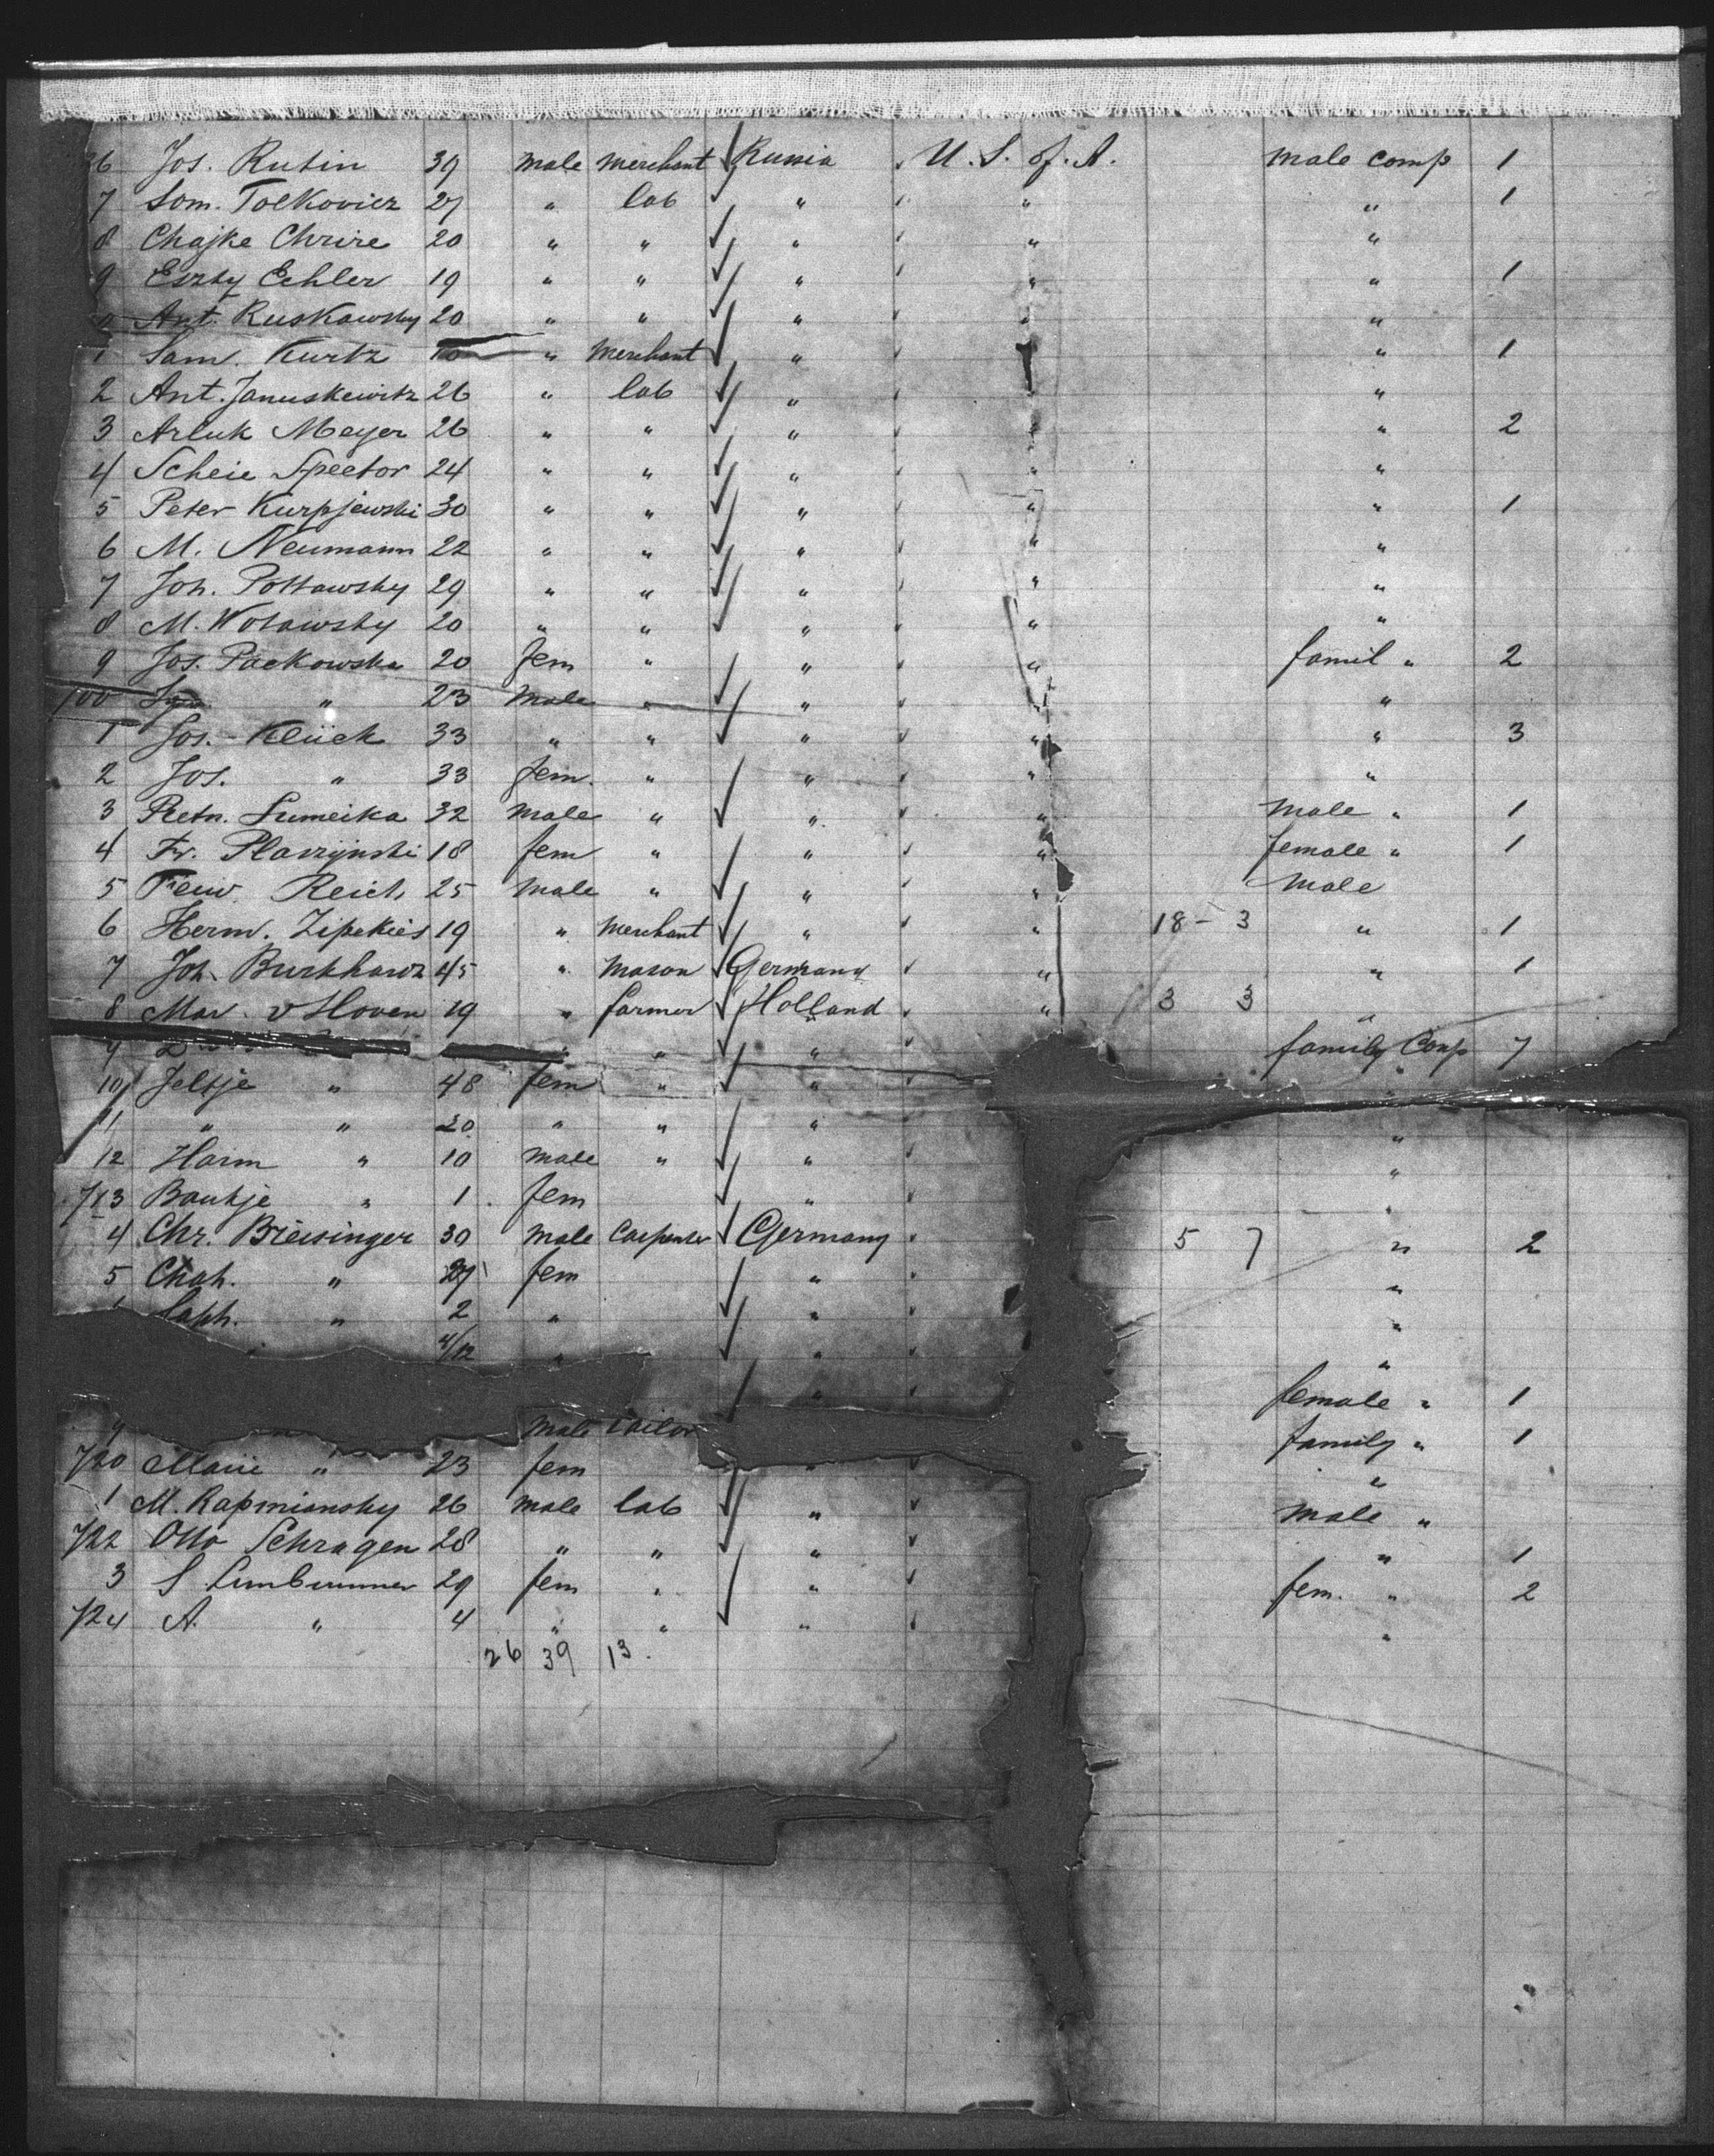 6 Jos. Rubin 39 male merchant Russia U. S. of. A. male comp 1
7 Som. Tolkovicz 27 " lab " " " 1
8 Chajke Chrire 20 " " " " "
9 Eszty Echler 19 " " " " " 1
Ant. Ruskowsky 20 " " " " "
1 Sam. Kurtz " merchant " " 1
2 Ant. Januskewitz 26 " lab " "
3 Arluk Meyer 26 " " " " " 2
4 Scheie Spector 24 " " " " "
5 Peter Kurpjewski 30 " " " " " 1
6 M. Neumann 22 " " " " "
7 Joh. Pottawsky 29 " " " " "
8 M. Wotawsky 20 " " " " "
9 Jos. Packowska 20 fem " " " famil " 2
700 " 23 male " " "
1 Jos. Klück 33 " " " " " 3
2 Jos. " 33 fem. " " " "
3 Petn. Sumeika 32 male " " " male " 1
4 Fr. Plavzynski 18 fem " " " female " 1
5 Feiw. Reich 25 male " " " male
6 Herm. Zipekies 19 " merchant " " 18 - 3 " 1
7 Joh. Burkharz 45 " mason Germany " " 1
8 Mar. v Hoven 19 " farmer Holland " 3 3 "
9 " " " family Comp 7
10 Jeltje " 48 fem " " "
11 " " 20 " " " "
12 Harm " 10 male " " "
713 Baukje " 1 fem " "
4 Chr. Breisinger 30 male Carpenter Germany 5 7 " 2
5 Chah. " 27 fem " "
Caph. " 2 " " "
" 4/12 " " "
" female " 1
9 male tailor family " 1
720 Marie " 23 fem " "
1 M. Rapmiansky 26 male lab " male "
722 Otto Schragen 28 " " " " 1
3 S Limbrunner 29 fem " " fem. " 2
724 A. " 4 " " " "
26 39 13.